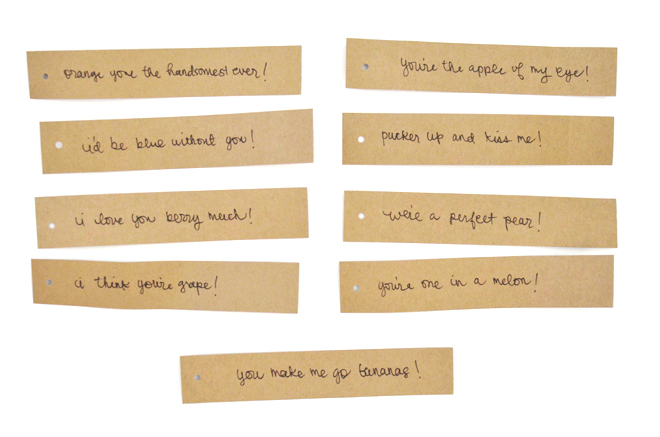 orange you the handsomest ever!
you're the apple of my eye!
i'd be blue without you!
pucker up and kiss me!
i love you berry much!
we're a perfect pear!
i think you're grape!
you're one in a melon!
you make me go bananas!